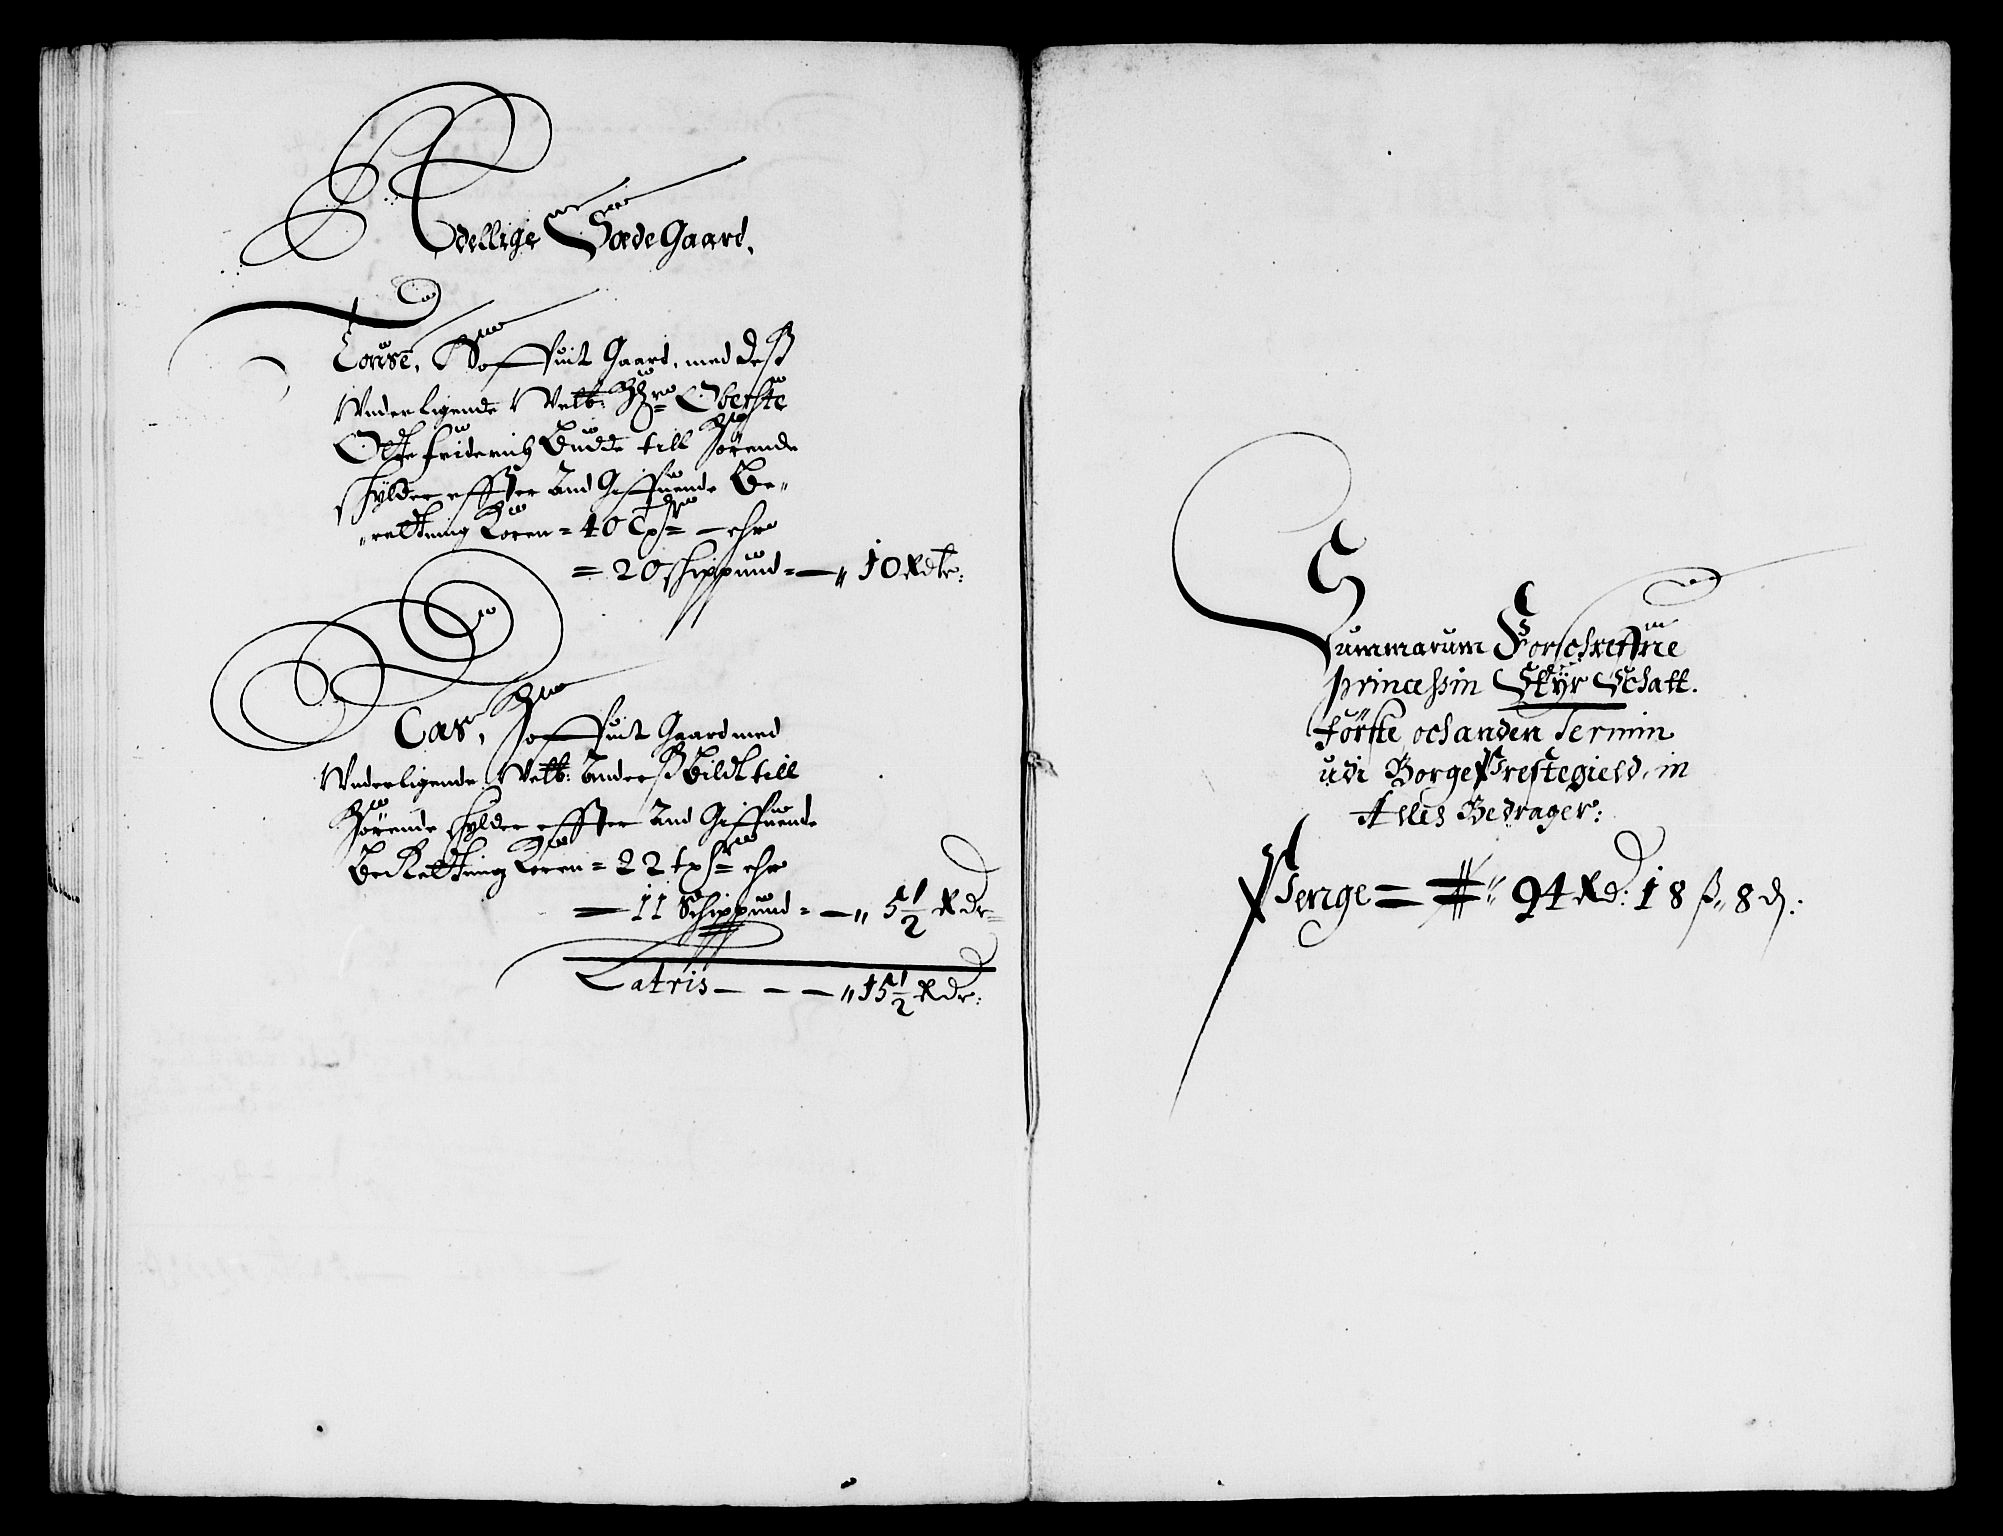 Adellige Sæde Gaard.
Tomse, Hoffuit Gaard, med deß
Vnderligende Velb: Hr: Oberste
Otte friderich Budde till hørende
skylder effter And Giffuende Be„
„rettning Koren = 40 tpſr = — ehr
= 20 skippund = — „ 10 Rdlr:
Cas, Hoffuit Gaard med
Vnderligende, Velb: Anders Bildt till
Hørende skylder effter And Giffuende
Berettning Koren = 22 tpſr = ehr
— 11 Schippund = — „ 5½ Rdr=
Latris — — — „ 15½ Rdr:
Summarum Forschreffne
princessin Styr Schatt.
förste och anden Termin
udi Borge Prestegield, in
Alles Bedrager:
Penge = „ 94 Rd: 18 ß„ 8 d: